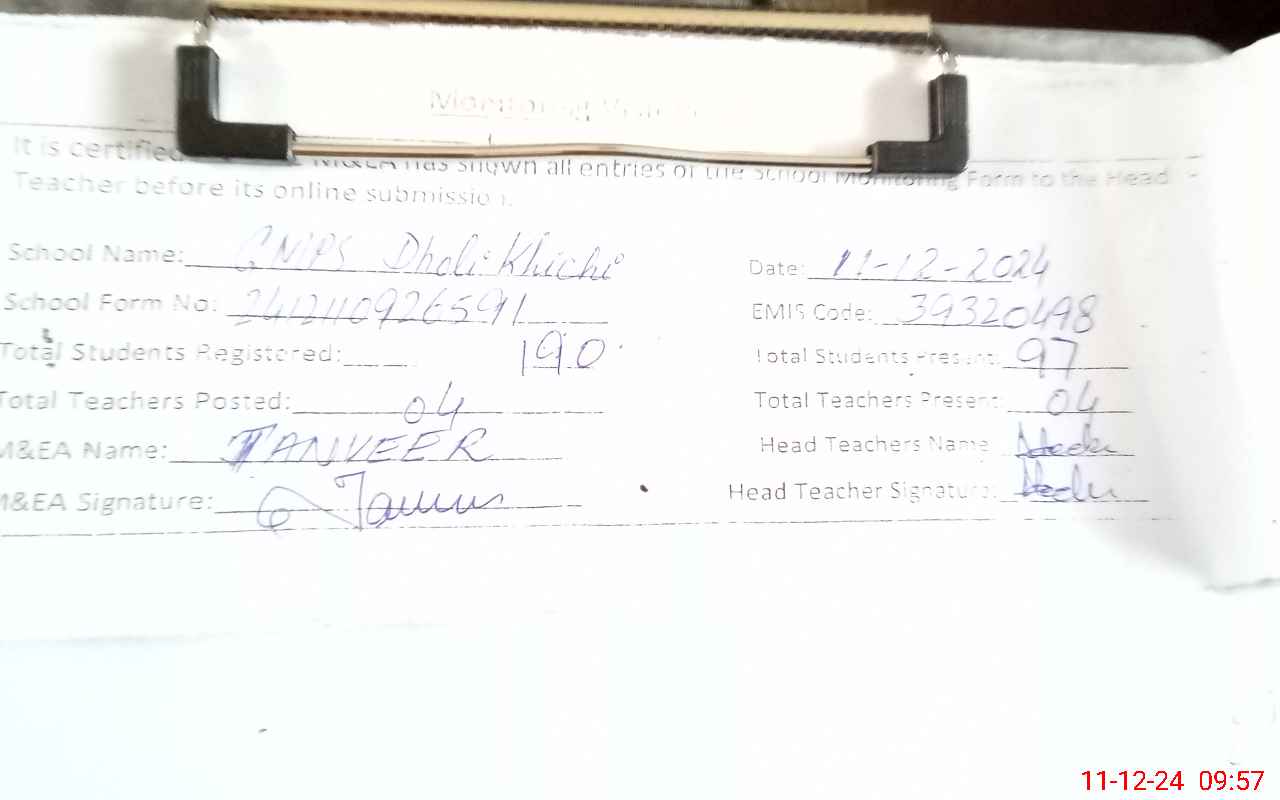 Monitoring
It is certified M&EA has shown all entries of the School Monitoring Form to the Head
Teacher before its online submission.
School Name: GNIPS Dholi Khichi Date: 11-12-2024
School Form No: 24121109926591 EMIS Code: 39320498
Total Students Registered: 190 Total Students Present: 97
Total Teachers Posted: 04 Total Teachers Present: 04
M&EA Name: TANVEER Head Teachers Name
M&EA Signature: Head Teacher Signature:
11-12-24 09:57